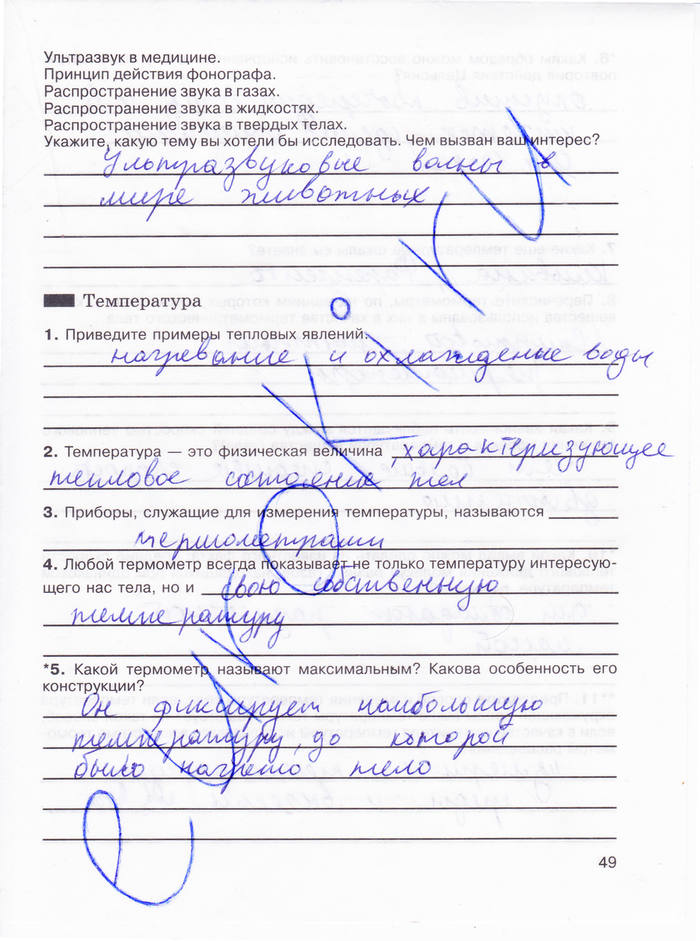 Ультразвук в медицине.
Принцип действия фонографа.
Распространение звука в газах.
Распространение звука в жидкостях.
Распространение звука в твердых телах.
Укажите, какую тему вы хотели бы исследовать. Чем вызван ваш интерес?
Ультразвуковые волны в
мире животных
Температура
1. Приведите примеры тепловых явлений.
нагревание и охлаждение воды
2. Температура — это физическая величина характеризующее
тепловое состояние тел
3. Приборы, служащие для измерения температуры, называются
термометрами
4. Любой термометр всегда показывает не только температуру интересую-
щего нас тела, но и свою собственную
температуру
*5. Какой термометр называют максимальным? Какова особенность его
конструкции?
Он фиксирует наибольшую
температуру, до которой
было нагрето тело
49